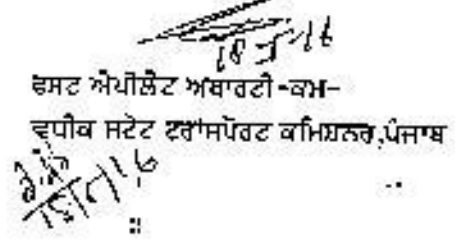 18/5/16
ਫਸਟ ਐਪੀਲੈਟ ਅਥਾਰਟੀ -ਕਮ-
ਵਧੀਕ ਸਟੇਟ ਟਰਾਂਸਪੋਰਟ ਕਮਿਸ਼ਨਰ,ਪੰਜਾਬ